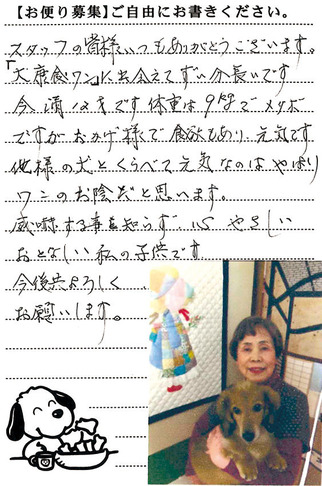 【お便り募集】ご自由にお書きください。
スタッフの皆様いつもありがとうございます。
「大麦食ワン」に出会えてずい分長いです
今 満12才です 体重は9kgでメタボ
ですがおかげ様で食欲もあり、元気です
他様の犬とくらべて元気なのはやはり
ワンのお陰だと思います。
威嚇する事も知らず、心やさしい
おとなしい私の子供です
今後共よろしく
お願いします。